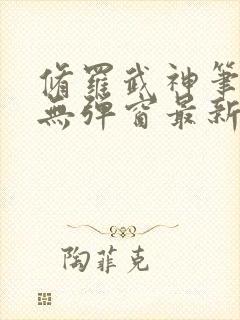 脩羅武神筆
無彈窗最新
陶菲克